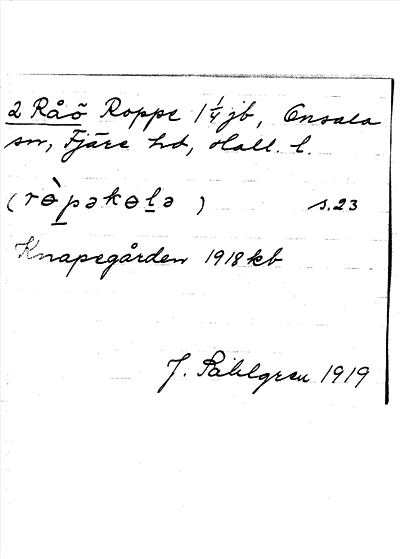 2 Råö Roppe 1/4 jb, Onsala
sn, Fjäre hd, Hall. l.
(rɵ̀pəkɵlə) s.23
Knapegården 1918 kb
J. Sahlgren 1919